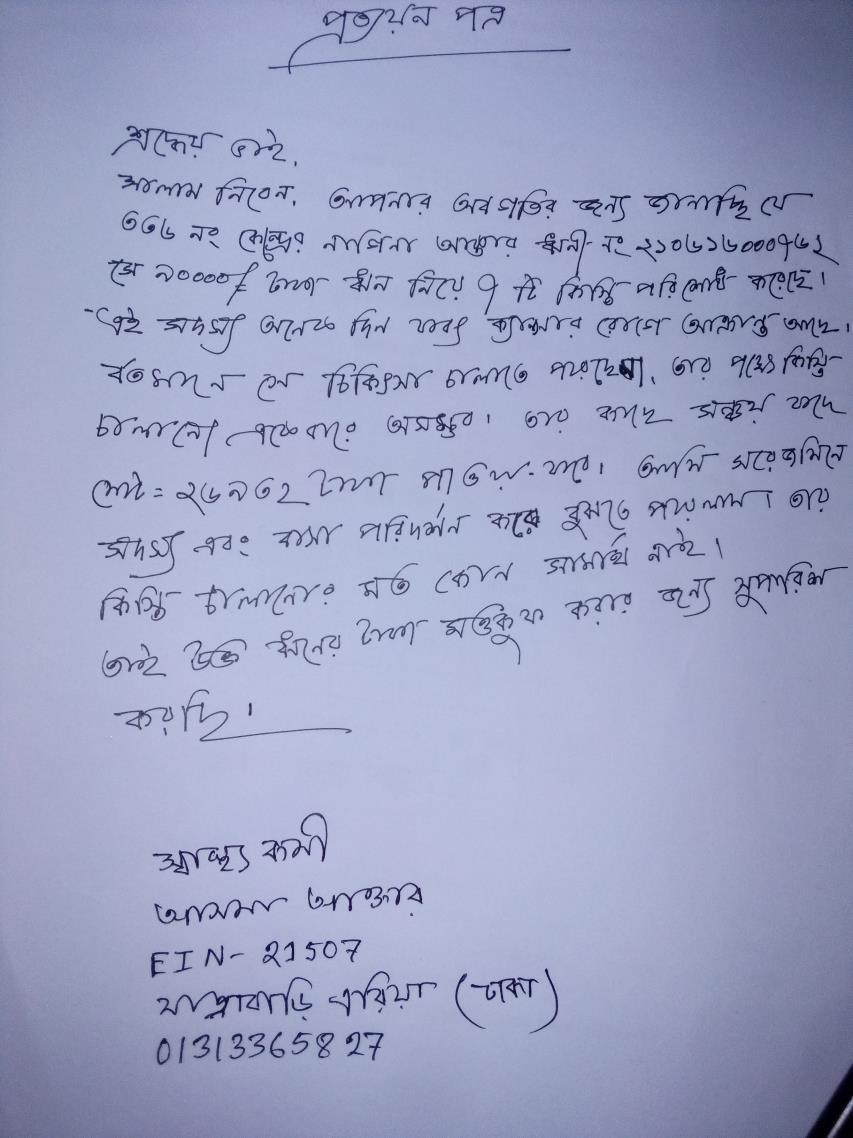 প্রত্যয়ন পত্র
শ্রদ্ধেয় ভাই,
সালাম নিবেন, আপনার অবগতির জন্য জানাচ্ছি যে
৩৩৬ নং কেন্দ্রের নাগিনা আক্তার ঋনী নং ২১০৬১৬০০০৭৬২
সে ৯০০০০/= টাকা ঋন নিয়ে ৭ টি কিস্তি পরিশোধ করেছে।
এই সদস্য অনেক দিন যাবৎ ক্যান্সার রোগে আক্রান্ত আছে।
বর্তমানে সে চিকিৎসা চালাতে পারছেনা, তার পক্ষে কিস্তি
চালানো একেবারে অসম্ভব। তার কাছে সঞ্চয় বাদে
মোট = ২৬৯৩২ টাকা পাওয়া যাবে। আমি সরেজমিনে
সদস্য এবং বাসা পরিদর্শন করে বুঝতে পারলাম। তার
কিস্তি চালানোর মত কোন সামার্থ নাই।
তাই উক্ত ঋনের টাকা মওকুফ করার জন্য সুপারিশ
করছি।
স্বাস্থ্য কর্মী
আসমা আক্তার
EIN- 21507
যাত্রাবাড়ি এরিয়া (ঢাকা)
01313365827